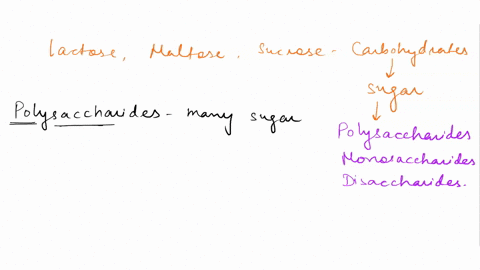 Lactose, Maltose, Sucrose - Carbohydrates
Sugar
Polysaccharides - many sugar
Polysaccharides
Monosaccharides
Disaccharides.